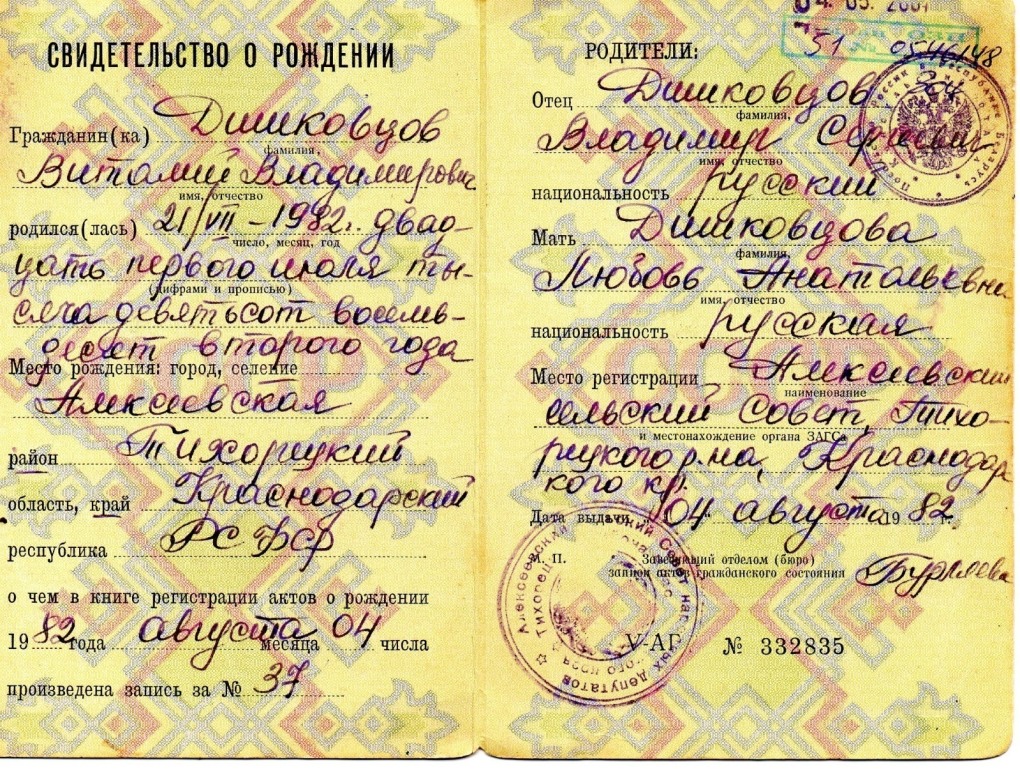 СВИДЕТЕЛЬСТВО О РОЖДЕНИИ
Гражданин(ка) Дишковцов
фамилия,
Виталий Владимирович
имя, отчество
родился(лась) 21/VII – 1982 г. двад-
число, месяц, год
цать первого июля ты-
(цифрами и прописью)
сяча девятьсот восемь-
десят второго года
Место рождения: город, селение
Алексеевская
район Тихорецкий
область, край Краснодарский
республика РСФСР
о чем в книге регистрации актов о рождении
1982 года августа месяца 04 числа
произведена запись за № 37
РОДИТЕЛИ:
Отец Дишковцов
фамилия,
Владимир Сергеевич
имя, отчество
национальность русский
Мать Дишковцова
фамилия,
Любовь Анатольевна
имя, отчество
национальность русская
Место регистрации Алексеевский
наименование
сельский Совет, Тихо-
и местонахождение органа ЗАГСа
рецкого р-на, Краснодарс
кого кр.
Дата выдачи „ 04 августа 1982 г.
М. П.
Заведующий отделом (бюро)
записи актов гражданского состояния
V-АГ № 332835